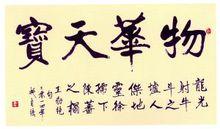 物華天寶
龍光
射牛
斗之
墟人
傑地
靈徐
孺下
陳蕃
之榻
王勃
句